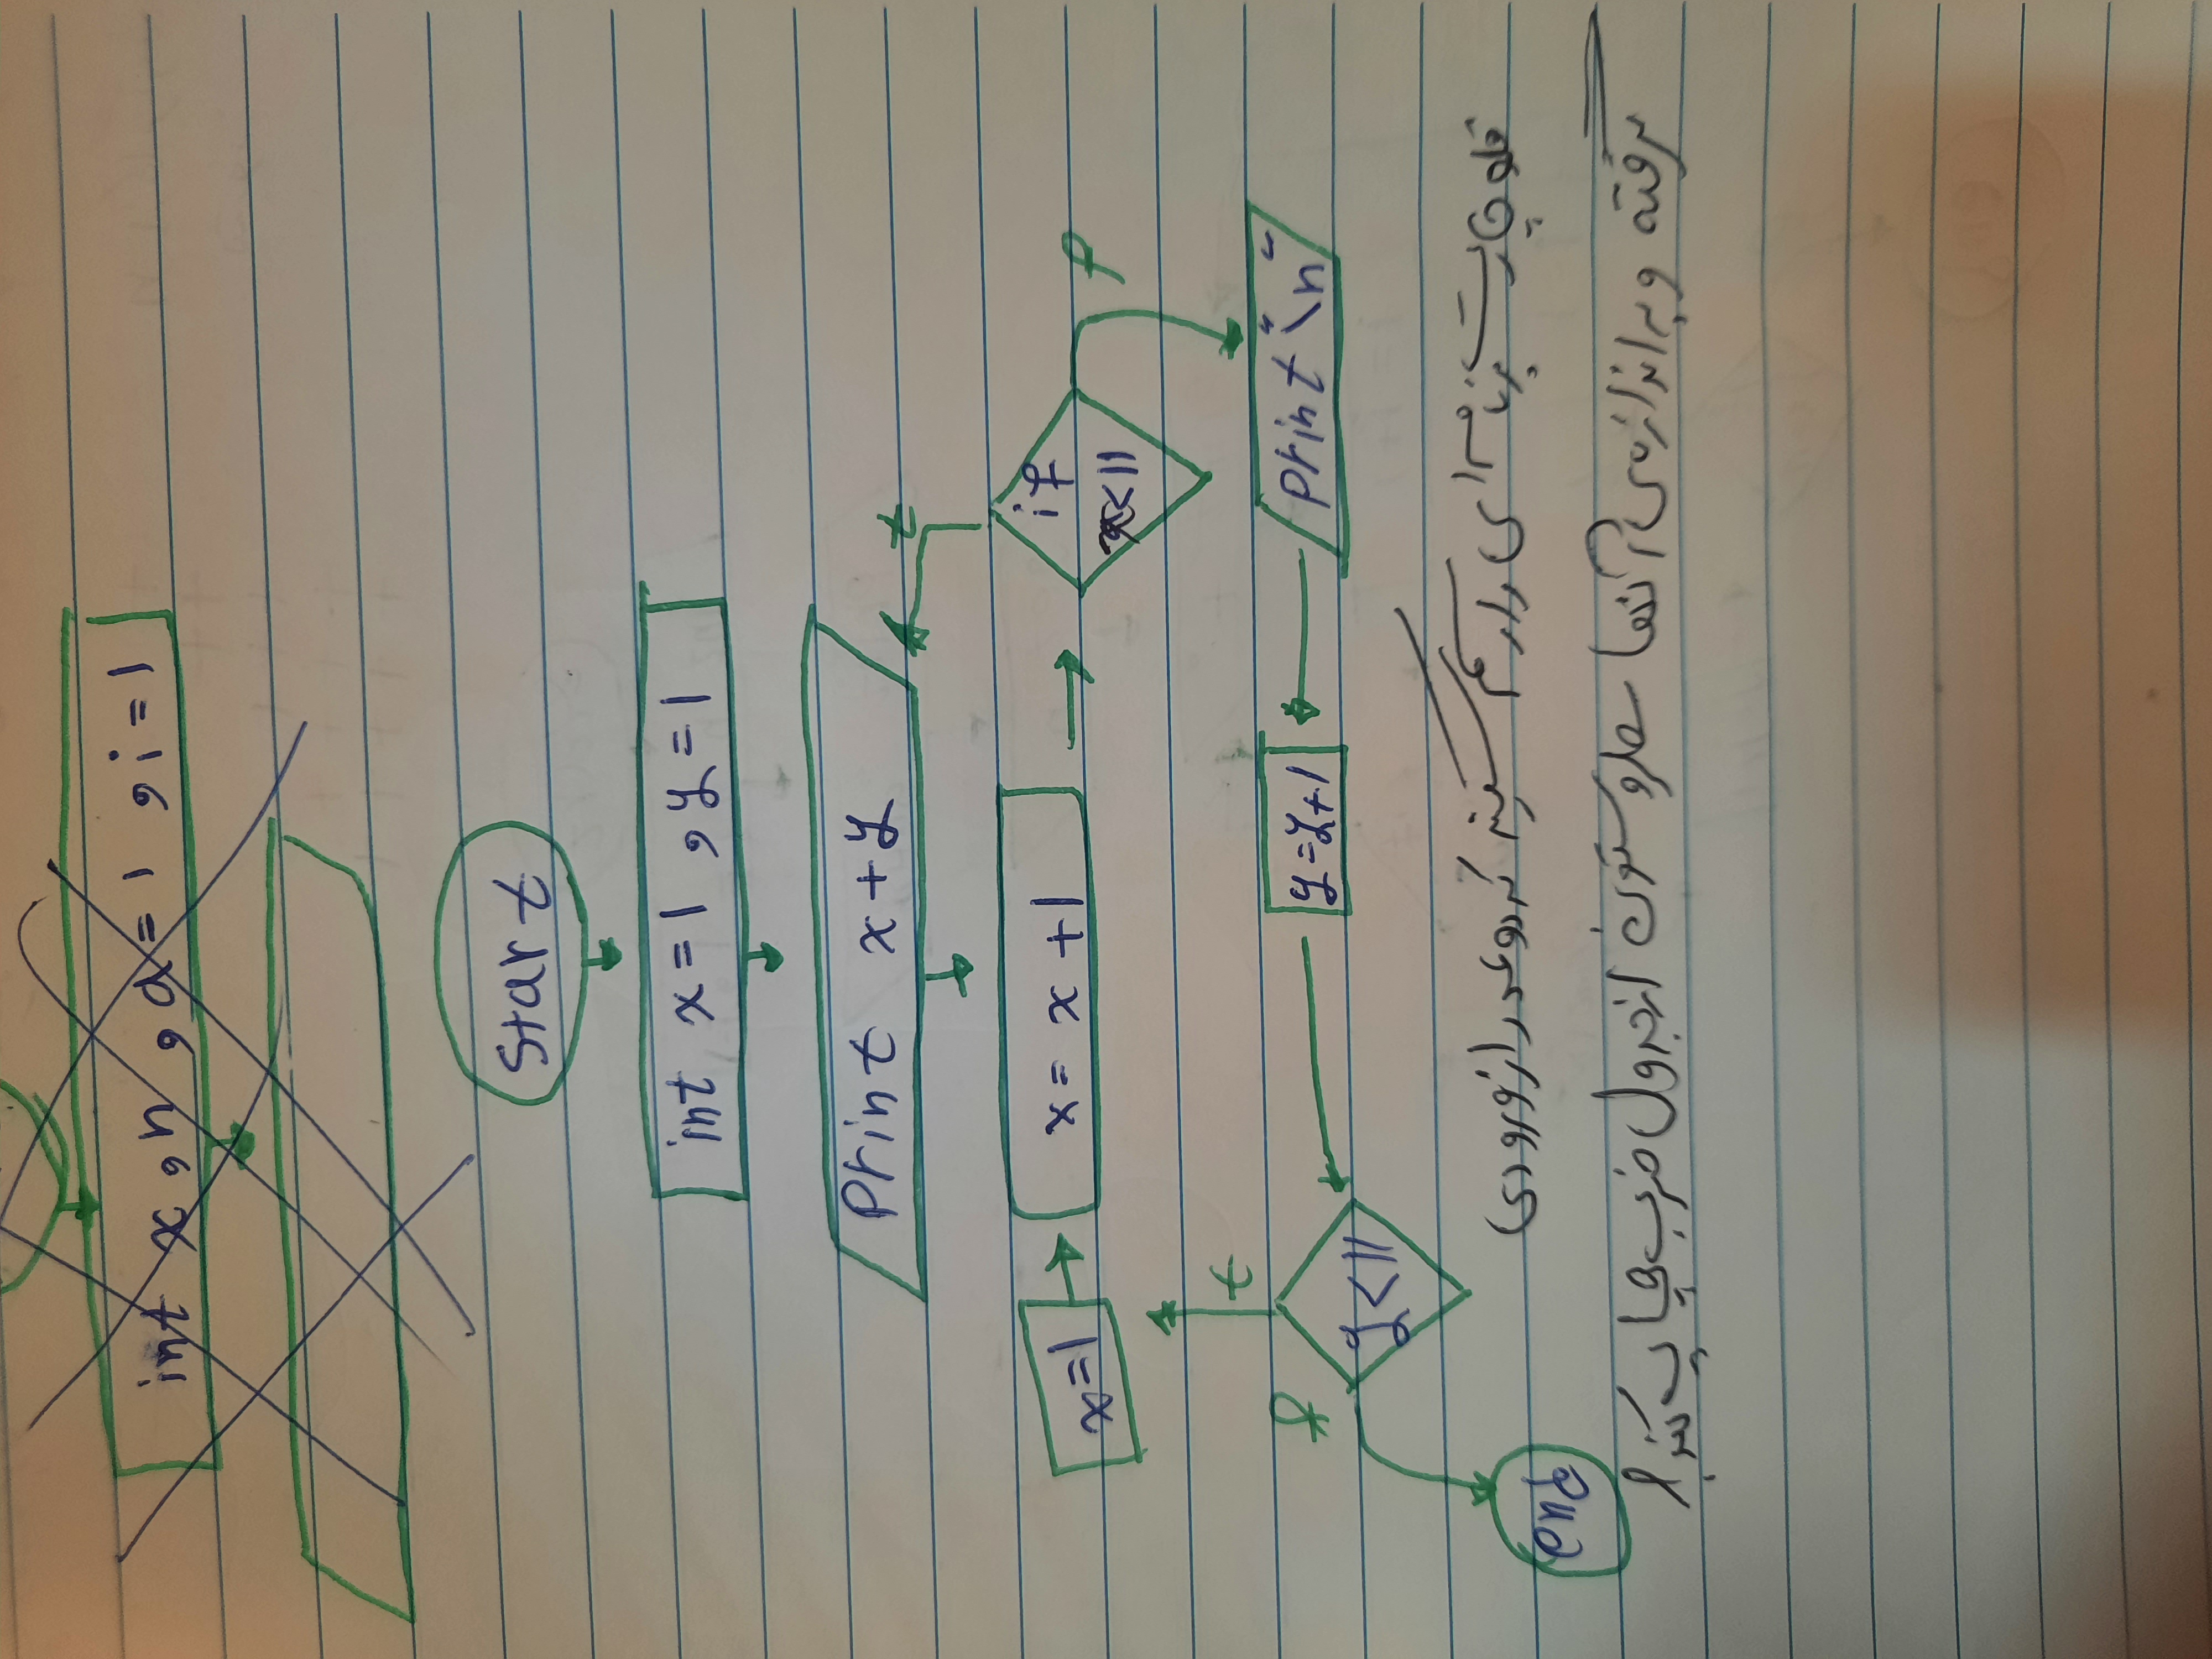 int x , n , a = 1 , i = 1
Start
int x = 1 , y = 1
Print x + y
t
x=1
x = x + 1
if
x<11
f
t
f
y<11
y=y+1
print "\n"
end
فلوچارت برنامه ای را رسم کنید که دو عدد را از ورودی
گرفته و به اندازه ی آنها سطر و ستون از جدول ضرب چاپ کند!